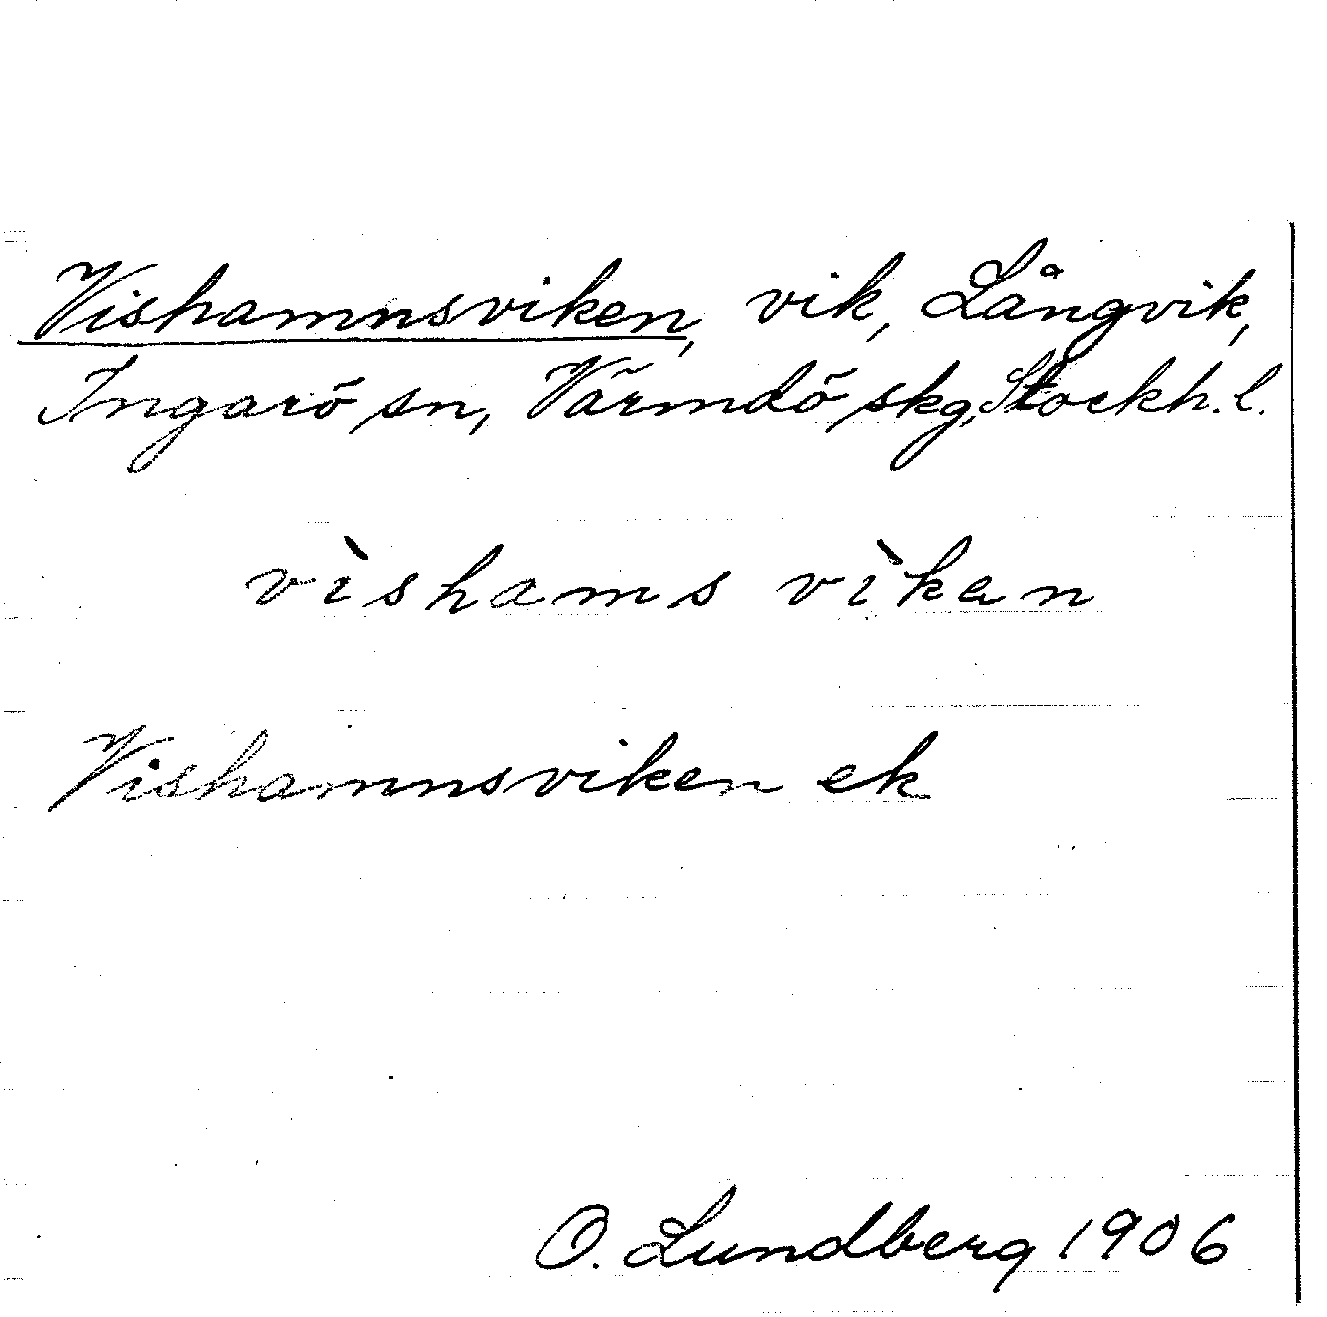 Vishamnsviken, vik, Långvik,
Ingarö sn, Värmdö skg, Stockh. l.
vìshams vìkan
Vishamnsviken ek
O. Lundberg 1906